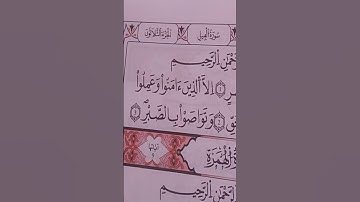 سُورَةُ الفِيلِ الجُزْءُ الثَّلَاثُونَ
حْمَٰنِ الرَّحِيمِ
إِلَّا الَّذِينَ ءَامَنُوا۟ وَعَمِلُوا۟
وَتَوَاصَوْا۟ بِالصَّبْرِ ٣
الهُمَزَةِ آيَاتُهَا
حْمَٰنِ الرَّحِيمِ